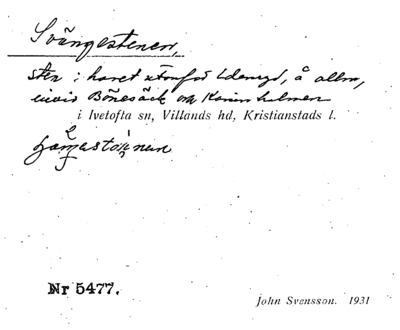 Svängestenen,
sten i havet utanför Edenryd, å allm,
invid Bönesäck och Kaninholmen
i Ivetofta sn, Villands hd, Kristianstads l.
Nr 5477.
John Svensson. 1931